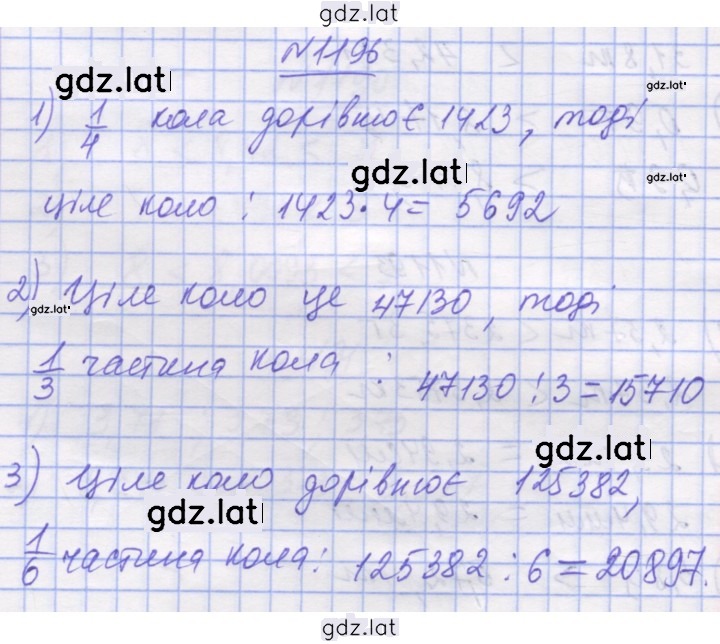 gdz.lat
№1196
gdz.lat
gdz.lat
1) 1/4 кола дорівнює 1423, тоді
gdz.lat
gdz.lat
ціле коло : 1423·4= 5692
2) Ціле коло це 47130, тоді
gdz.lat
gdz.lat
1/3 частина кола : 47130:3=15710
gdz.lat
3) Ціле коло дорівнює 125382,
gdz.lat
1/6 частина кола: 125382:6=20897.
gdz.lat